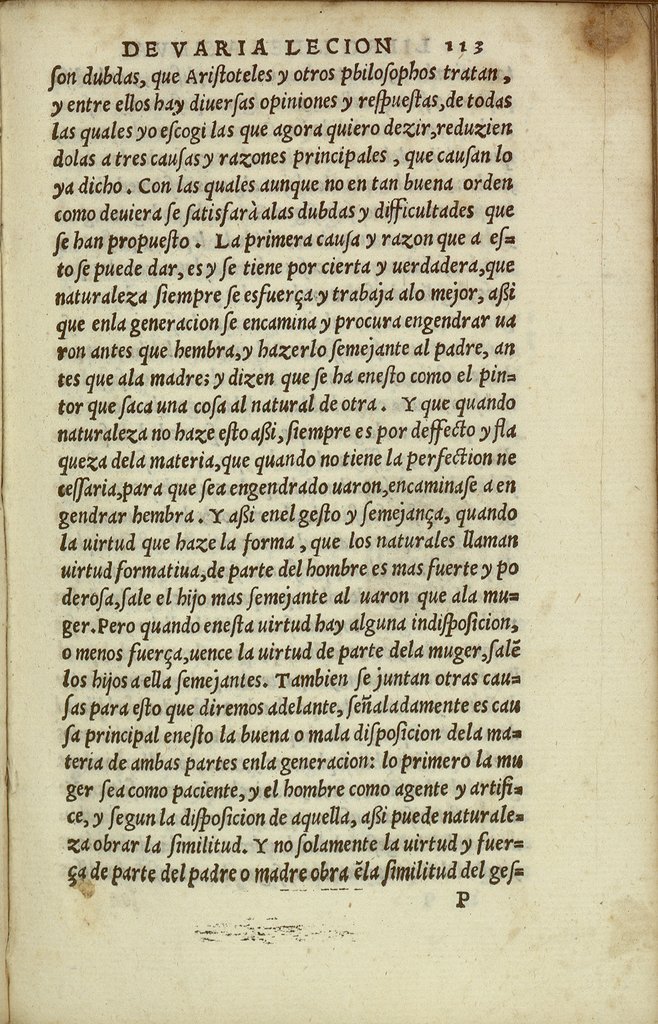 DE VARIA LECION 113
ſon dubdas, que Ariſtoteles y otros philoſophos tratan,
y entre ellos hay diuerſas opiniones y reſpueſtas, de todas
las quales yo eſcogi las que agora quiero dezir, reduzien
dolas a tres cauſas y razones principales, que cauſan lo
ya dicho. Con las quales aunque no en tan buena orden
como deuiera ſe ſatisfarà alas dubdas y difficultades que
ſe han propueſto. La primera cauſa y razon que a eſ=
to ſe puede dar, es y ſe tiene por cierta y uerdadera, que
naturaleza ſiempre ſe esfuerça y trabaja alo mejor, aßi
que enla generacion ſe encamina y procura engendrar ua
ron antes que hembra, y hazerlo ſemejante al padre, an
tes que ala madre; y dizen que ſe ha eneſto como el pin=
tor que ſaca una coſa al natural de otra. Y que quando
naturaleza no haze eſto aßi, ſiempre es por deffecto y fla
queza dela materia, que quando no tiene la perfection ne
ceſſaria, para que ſea engendrado uaron, encaminaſe a en
gendrar hembra. Y aßi enel geſto y ſemejança, quando
la uirtud que haze la forma, que los naturales llaman
uirtud formatiua, de parte del hombre es mas fuerte y po
deroſa, ſale el hijo mas ſemejante al uaron que ala mu=
ger. Pero quando eneſta uirtud hay alguna indiſpoſicion,
o menos fuerça, uence la uirtud de parte dela muger, ſalẽ
los hijos a ella ſemejantes. Tambien ſe juntan otras cau=
ſas para eſto que diremos adelante, ſeñaladamente es cau
ſa principal eneſto la buena o mala diſpoſicion dela ma=
teria de ambas partes enla generacion: lo primero la mu
ger ſea como paciente, y el hombre como agente y artifi=
ce, y ſegun la diſpoſicion de aquella, aßi puede naturale=
za obrar la ſimilitud. Y no ſolamente la uirtud y fuer=
ça de parte del padre o madre obra ẽla ſimilitud del geſ=
P